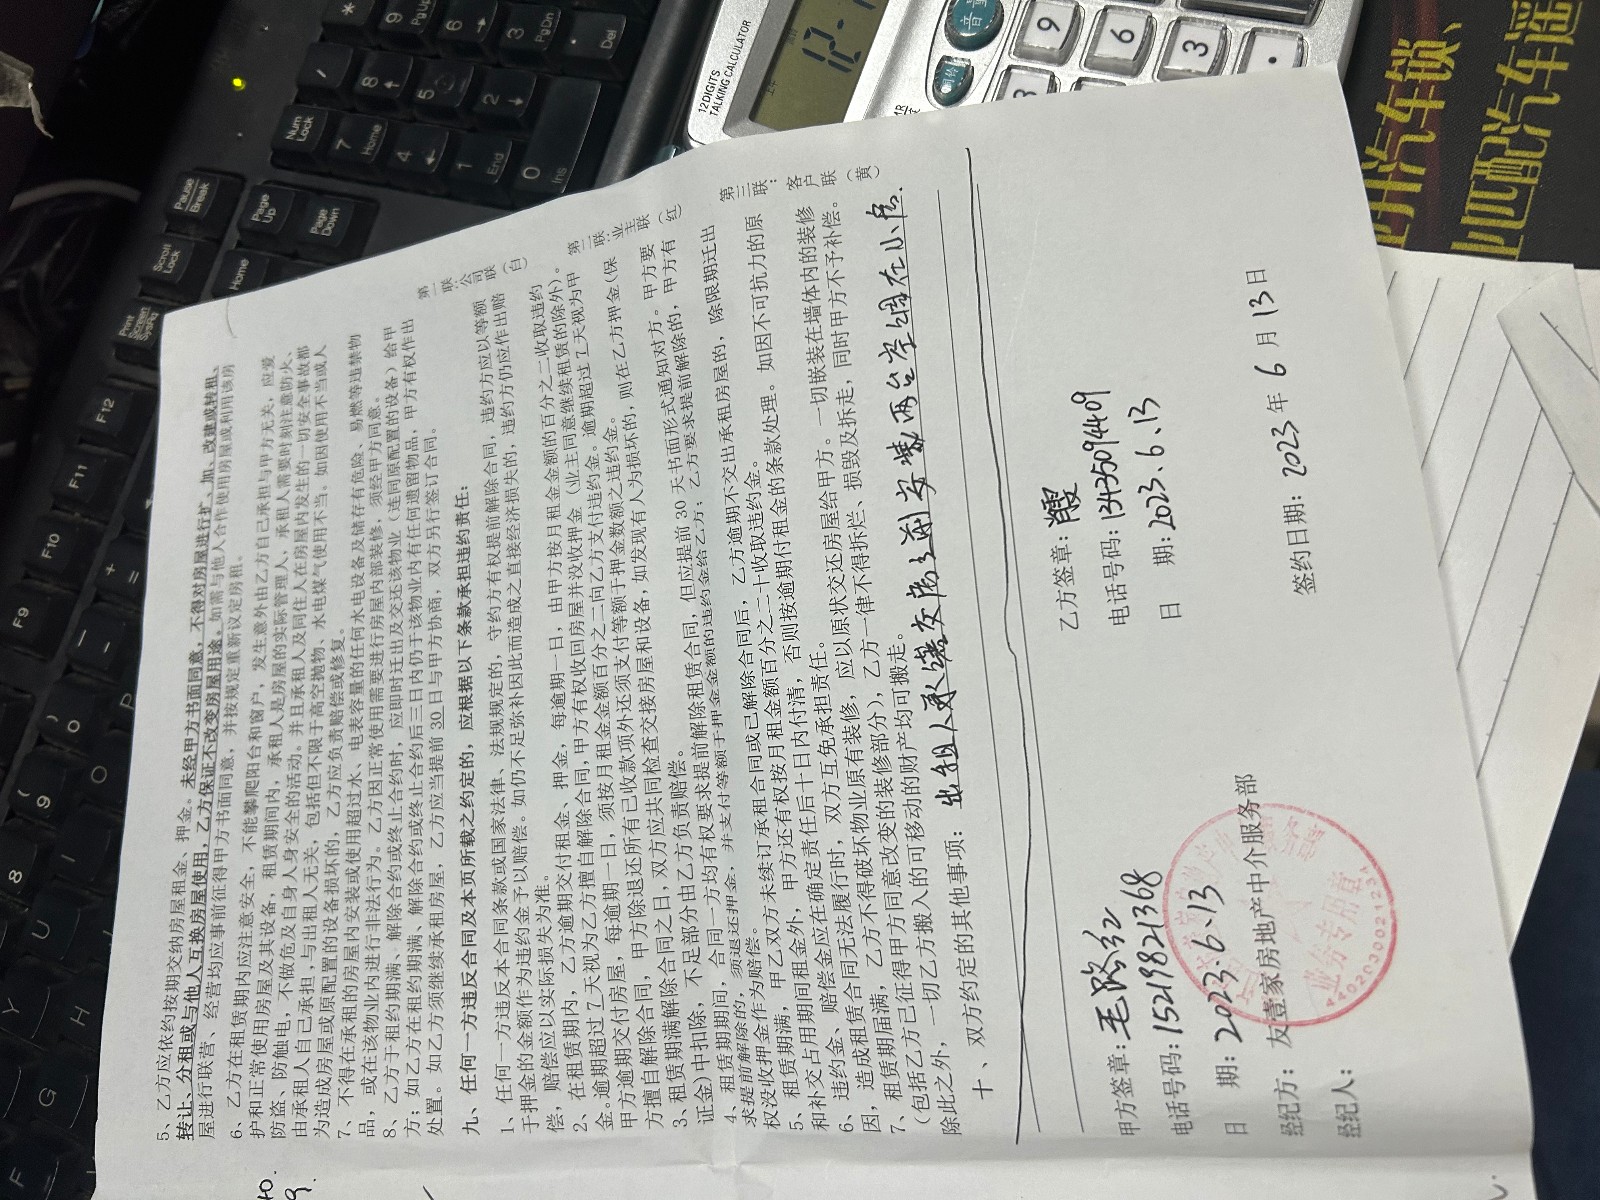 5、乙方应依约按期交纳房屋租金、押金。未经甲方书面同意，不得对房屋进行扩、加、改建或转租、
转让、分租或与他人互换房屋使用，乙方保证不改变房屋用途。如需与他人合作使用房屋或利用该房
屋进行联营、经营均应事前征得甲方书面同意，并按规定重新议定房租。
6、乙方在租赁期内应注意安全，不能攀爬阳台和窗户，发生意外由乙方自己承担与甲方无关，应爱
护和正常使用房屋及其设备，租赁期间内，承租人是房屋的实际管理人、承租人需要时刻注意防火、
防盗、防触电，不做危及自身人身安全的活动。并且承租人及同住人在房屋内发生的一切安全事故都
由承租人自己承担，与出租人无关，包括但不限于高空抛物、水电煤气使用不当。如因使用不当或人
为造成房屋或原配置的设备损坏的，乙方应负责赔偿或修复。
7、不得在承租的房屋内安装或使用超过水、电表容量的任何水电设备及储存有危险、易燃等违禁物
品，或在该物业内进行非法行为。乙方因正常使用需要进行房屋内部装修，须经甲方同意。
8、乙方于租约期满、解除合约或终止合约时，应即时迁出及交还该物业（连同原配置的设备）给甲
方；如乙方在租约期满、解除合约或终止合约后三日内仍于该物业内有任何遗留物品，甲方有权作出
处置。如乙方须继续承租房屋，乙方应当提前30日与甲方协商，双方另行签订合同。
九、任何一方违反合同及本页所载之约定的，应根据以下条款承担违约责任：
1、任何一方违反本合同条款或国家法律、法规规定的，守约方有权提前解除合同，违约方应以等额
于押金的金额作为违约金予以赔偿。如仍不足弥补因此而造成之直接经济损失的，违约方仍应作出赔
偿，赔偿应以实际损失为准。
2、在租赁期内，乙方逾期交付租金、押金，每逾期一日，由甲方按月租金金额的百分之二收取违约
金。逾期超过7天视为乙方擅自解除合同，甲方有权收回房屋并没收押金（业主同意继续租赁的除外）。
甲方逾期交付房屋，每逾期一日，须按月租金金额百分之二向乙方支付违约金。逾期超过7天视为甲
方擅自解除合同，甲方除退还所有已收款项外还须支付等额于押金数额之违约金。
3、租赁期满解除合同之日，双方应共同检查交接房屋和设备，如发现有人为损坏的，则在乙方押金(保
证金)中扣除，不足部分由乙方负责赔偿。
4、租赁期期间，合同一方均有权要求提前解除租赁合同，但应提前30天书面形式通知对方。甲方要
求提前解除的，须退还押金，并支付等额于押金金额的违约金给乙方；乙方要求提前解除的，甲方有
权没收押金作为赔偿。
5、租赁期满，甲乙双方未续订承租合同或已解除合同后，乙方逾期不交出承租房屋的，除限期迁出
和补交占用期间租金外，甲方还有权按月租金额百分之二十收取违约金。
6、违约金、赔偿金应在确定责任后十日内付清，否则按逾期付租金的条款处理。如因不可抗力的原
因，造成租赁合同无法履行时，双方互免承担责任。
7、租赁期届满，乙方不得破坏物业原有装修，应以原状交还房屋给甲方。一切嵌装在墙体内的装修
（包括乙方已征得甲方同意改变的装修部分），乙方一律不得拆烂、损毁及拆走，同时甲方不予补偿。
除此之外，一切乙方搬入的可移动的财产均可搬走。
第一联：公司联（白）
第二联：业主联（红）
第三联：客户联（黄）
十、双方约定的其他事项：出租人承诺交房之前安装两台空调在小房.
甲方签章：毛路红
电话号码：15219821368
日期：2023.6.13
经纪方：友壹家房地产中介服务部
经纪人：
乙方签章：
电话号码：13435094409
日期：2023.6.13
签约日期：2023年6月13日
业务专用章
12DIGITS
TALKING CALCULATOR
12-
音量
9
6
3
.
Print
Screen
SysRq
Scroll
Lock
Pause
Break
Home
Page
Up
Page
Down
Num
Lock
/
*
7
Home
8
9
PgUp
4
5
6
1
End
2
3
PgDn
0
Ins
.
Del
F9
F10
F11
F12
8
9
0
Y
U
I
O
P
F
G
H
匹配汽车遥
汽车锁、